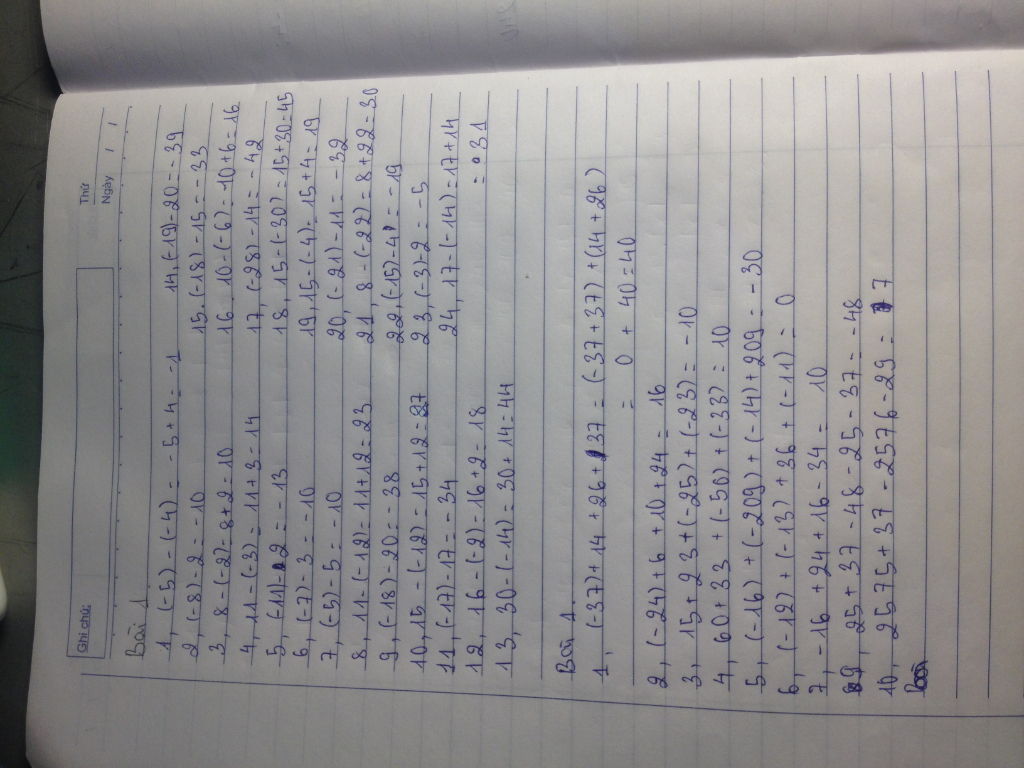 Ghi chú:
Thứ
Ngày / /
Bài 1
1, (-5) - (-4) = -5 + 4 = -1
14, (-19) - 20 = -39
2, (-8) - 2 = -10
15. (-18) - 15 = -33
3, 8 - (-2) = 8 + 2 = 10
16. 10 - (-6) = -10 + 6 = 16
4, 11 - (-3) = 11 + 3 = 14
17, (-28) - 14 = -42
5, (-11) - 2 = -13
18, 15 - (-30) = 15 + 30 = 45
6, (-7) - 3 = -10
19, 15 - (-4) = 15 + 4 = 19
7, (-5) - 5 = -10
20, (-21) - 11 = -32
8, 11 - (-12) = 11 + 12 = 23
21, 8 - (-22) = 8 + 22 = 30
9, (-18) - 20 = -38
22, (-15) - 4 = -19
10, 15 - (-12) = 15 + 12 = 27
23, (-3) - 2 = -5
11, (-17) - 17 = -34
24, 17 - (-14) = 17 + 14
12, 16 - (-2) = 16 + 2 = 18
= 31
13, 30 - (-14) = 30 + 14 = 44
Bài 1.
1, (-37) + 14 + 26 + 37 = (-37 + 37) + (14 + 26)
= 0 + 40 = 40
2, (-24) + 6 + 10 + 24 = 16
3, 15 + 23 + (-25) + (-23) = -10
4, 60 + 33 + (-50) + (-33) = 10
5, (-16) + (-209) + (-14) + 209 = -30
6, (-12) + (-13) + 36 + (-11) = 0
7, -16 + 24 + 16 - 34 = 10
9, 25 + 37 - 48 - 25 - 37 = -48
10, 2575 + 37 - 2576 - 29 = 7